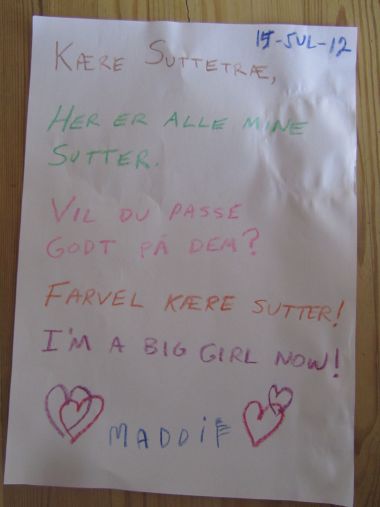 15-JUL-12
KÆRE SUTTETRÆ,
HER ER ALLE MINE
SUTTER.
VIL DU PASSE
GODT PÅ DEM?
FARVEL KÆRE SUTTER!
I'M A BIG GIRL NOW!
MADDIE